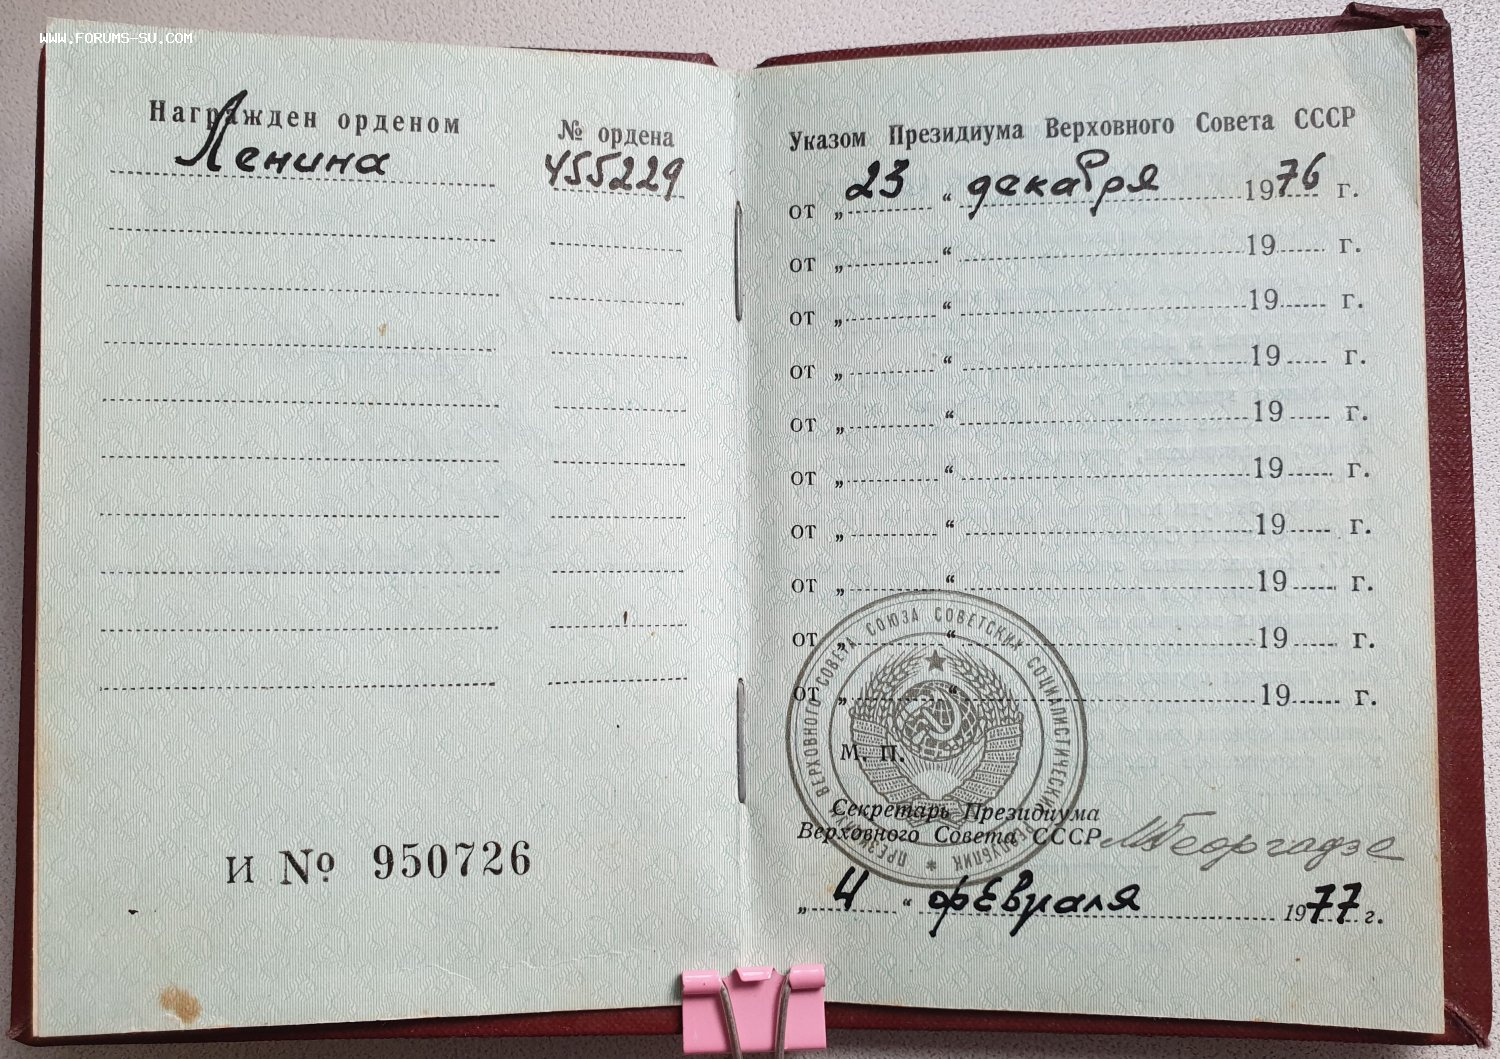 WWW.FORUMS-SU.COM
Награжден орденом
№ ордена
Ленина
455229
И № 950726
Указом Президиума Верховного Совета СССР
от „ 23 “ декабря 1976 г.
от „ “ 19 г.
от „ “ 19 г.
от „ “ 19 г.
от „ “ 19 г.
от „ “ 19 г.
от „ “ 19 г.
от „ “ 19 г.
от „ “ 19 г.
от „ “ 19 г.
ПРЕЗИДИУМ ВЕРХОВНОГО СОВЕТА СОЮЗА СОВЕТСКИХ СОЦИАЛИСТИЧЕСКИХ РЕСПУБЛИК
М. П.
Секретарь Президиума
Верховного Совета СССР МГеоргадзе
„ 4 “ февраля 1977 г.